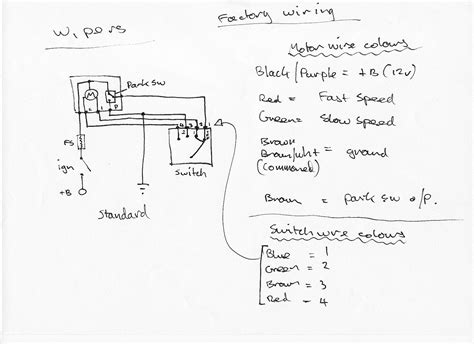 Wipers
Factory wiring
Motor wire colours
Black/Purple = +B (12v)
Red = Fast Speed
Green = Slow speed
Brown
Brown/wht = ground
(Commoned)
Brown = park sw o/p.
Park sw
M
FS
ign
+B
Switch
Standard
Switch wire colours
Blue = 1
Green = 2
Brown = 3
Red = 4